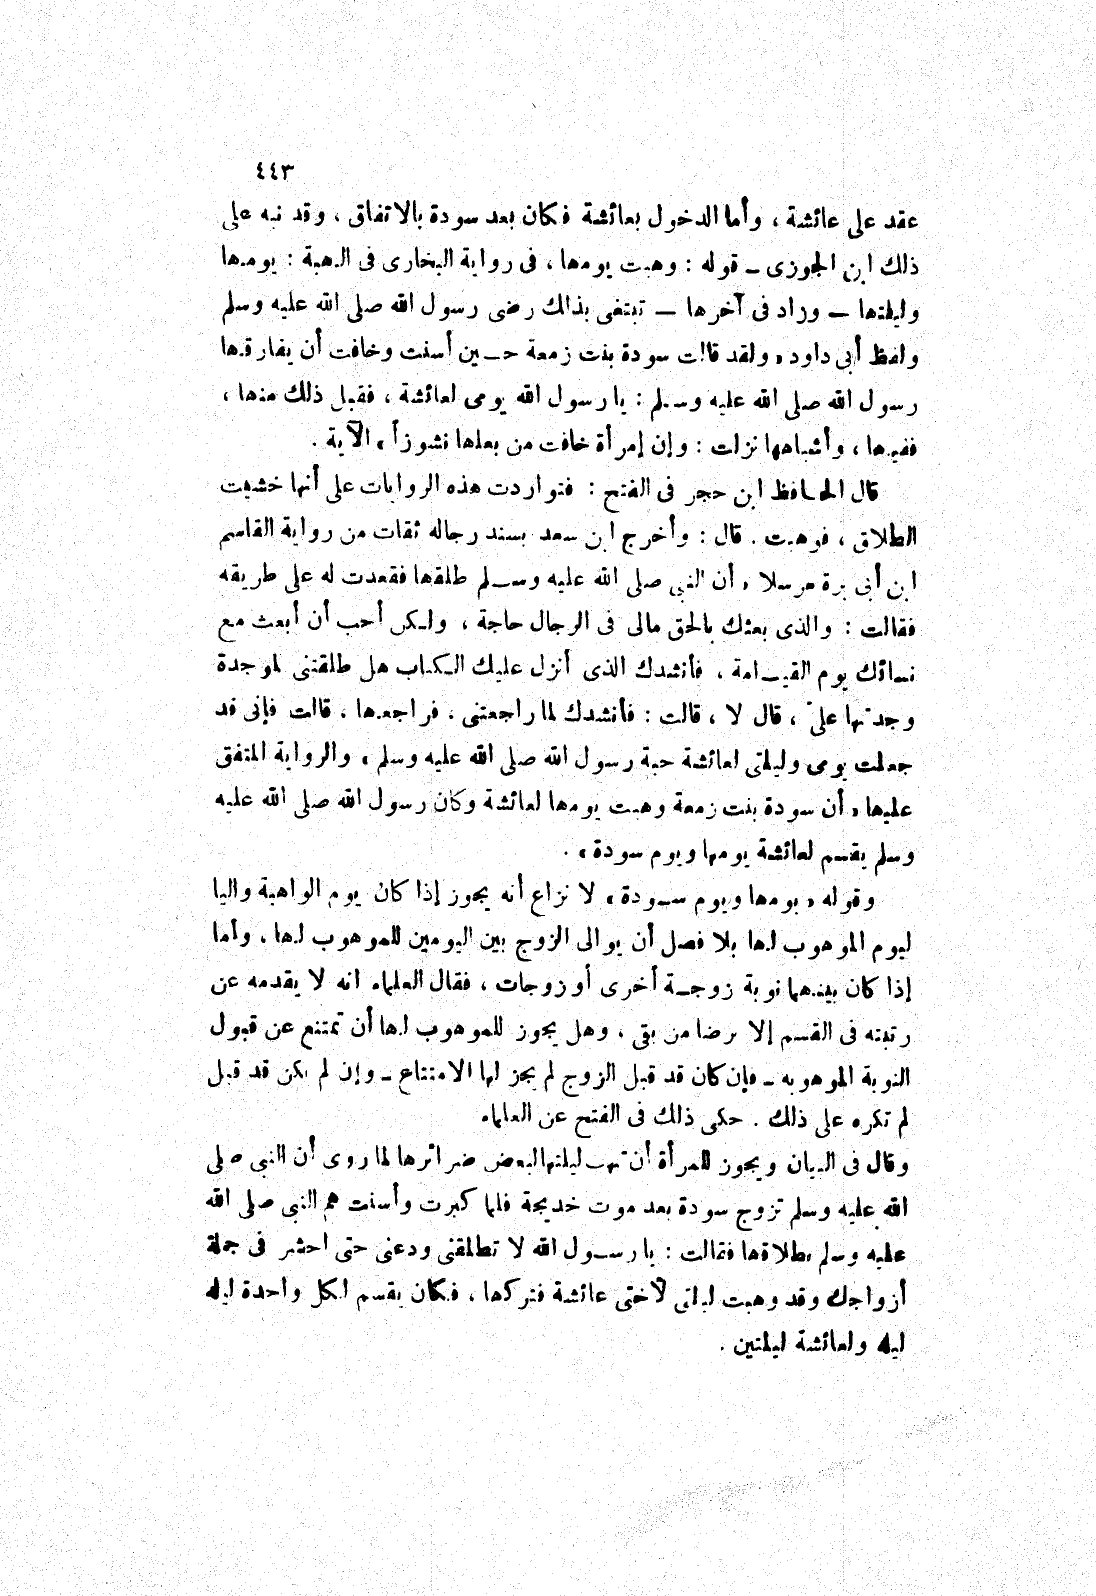 ٤٤٣
عقد على عائشة ، وأما الدخول بعائشة فكان بعد سودة بالاتفاق ، وقد نبه على
ذلك ابن الجوزى ــ قوله : وهبت يومها ، فى رواية البخارى فى الهبة : يومها
وليلتها ــ وزاد فى آخرها ــ تبتغى بذلك رضى رسول الله صلى الله عليه وسلم
ولفظ أبى داود « ولقد قالت سودة بنت زمعة حين أسنت وخافت أن يفارقها
رسول الله صلى الله عليه وسلم : يا رسول الله يومى لعائشة ، فقبل ذلك منها ،
ففيها ، وأشباهها نزلت : وإن إمرأة خافت من بعلها نشوزاً » الآية .
قال الحافظ ابن حجر فى الفتح : فتواردت هذه الروايات على أنها خشيت
الطلاق ، فوهبت . قال : وأخرج ابن سعد بسند رجاله ثقات من رواية القاسم
ابن أبى برة مرسلا « أن النبى صلى الله عليه وسلم طلقها فقعدت له على طريقه
فقالت : والذى بعثك بالحق مالى فى الرجال حاجة ، ولكن أحب أن أبعث مع
نسائك يوم القيامة ، فأنشدك الذى أنزل عليك الكتاب هل طلقتنى لموجدة
وجدتها علىّ ، قال لا ، قالت : فأنشدك لما راجعتنى ، فراجعها ، قالت فإنى قد
جعلت يومى وليلتى لعائشة حبة رسول الله صلى الله عليه وسلم » والرواية المتفق
عليها « أن سودة بنت زمعة وهبت يومها لعائشة وكان رسول الله صلى الله عليه
وسلم يقسم لعائشة يومها ويوم سودة » .
وقوله « يومها ويوم سودة » لا نزاع أنه يجوز إذا كان يوم الواهبة واليا
ليوم الموهوب لها بلا فصل أن يوالى الزوج بين اليومين للموهوب لها ، وأما
إذا كان بينهما نوبة زوجة أخرى أو زوجات ، فقال العلماء انه لا يقدمه عن
رتبته فى القسم إلا برضا من بقى ، وهل يجوز للموهوب لها أن تمتنع عن قبول
النوبة الموهوبه ــ فإن كان قد قبل الزوج لم يجز لها الامتناع ــ وإن لم يكن قد قبل
لم تكره على ذلك . حكى ذلك فى الفتح عن العلماء
وقال فى البيان ويجوز للمرأة أن تهب ليلتها لبعض ضرائرها لما روى أن النبى صلى
الله عليه وسلم تزوج سودة بعد موت خديجة فلما كبرت وأسنت هم النبى صلى الله
عليه وسلم بطلاقها فقالت : يا رسول الله لا تطلقنى ودعنى حتى احشر فى جملة
أزواجك وقد وهبت ليلتى لأختى عائشة فتركها ، فكان يقسم لكل واحدة ليلة
ليلة ولعائشة ليلتين .